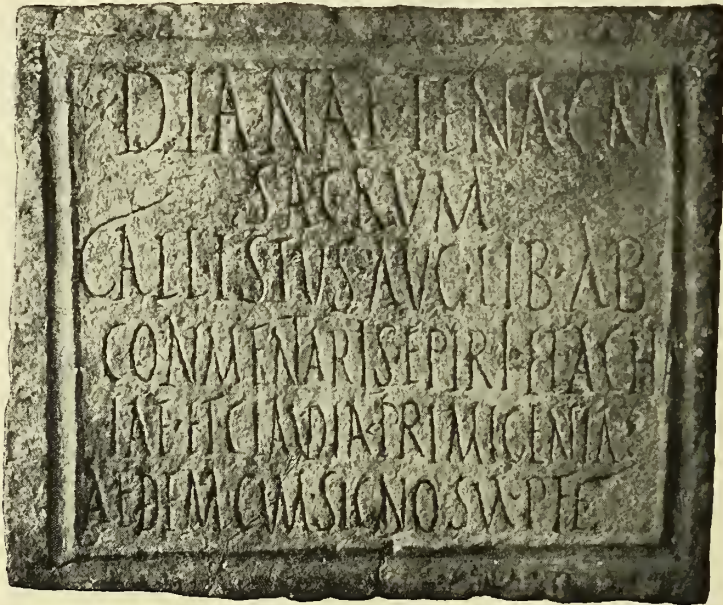 DIANAE
SACRVM
CALLISTVS·AVG·LIB·AB
CONMENTARIS·EPIRI·ET ACHA
IAE·ET CLAVDIA·PRIMIGENIA
AEDEM CVM·SIGNO·SVA·